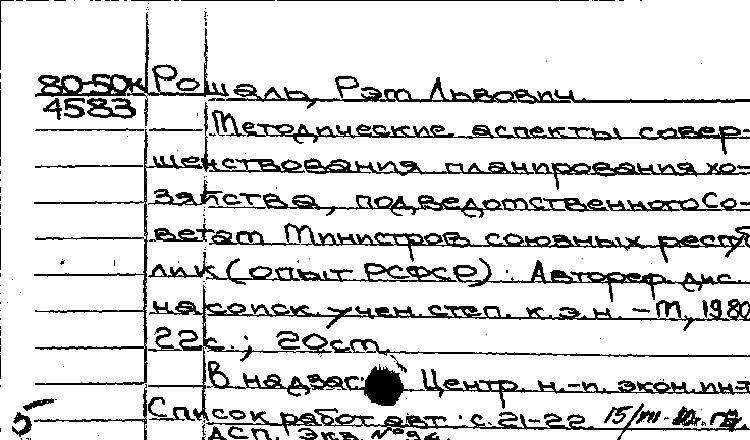 80-50к Рошаль, Рэт Львович
4583
Методические аспекты совер-
шенствования планирования хо-
зяйства, подведомственного Со-
ветам Министров союзных респуб
лик (опыт РСФСР). Автореф. дис.
на соиск. учен. степ. к. э. н. - М, 1980
22с.; 20см.
В надзаг. Центр. н.-и. экон. ин-т
Список работ авт.: с. 21-22.
5 ДСП. Экз. №94.